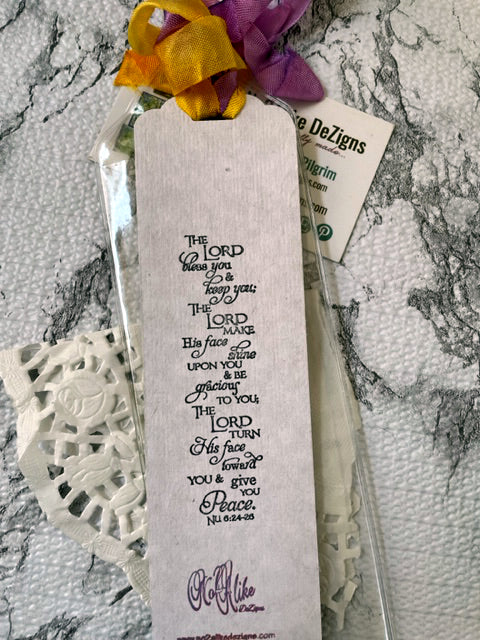 ke DeZigns
made...
Pilgrim
s.com
.com
THE
LORD
bless you
&
keep you;
THE
LORD
MAKE
His face
shine
UPON YOU
& BE
gracious
TO YOU;
THE
LORD
TURN
His face
toward
YOU & give
YOU
Peace.
NU 6:24-26
Not Alike
DeZigns
www.no2alikedezigns.com